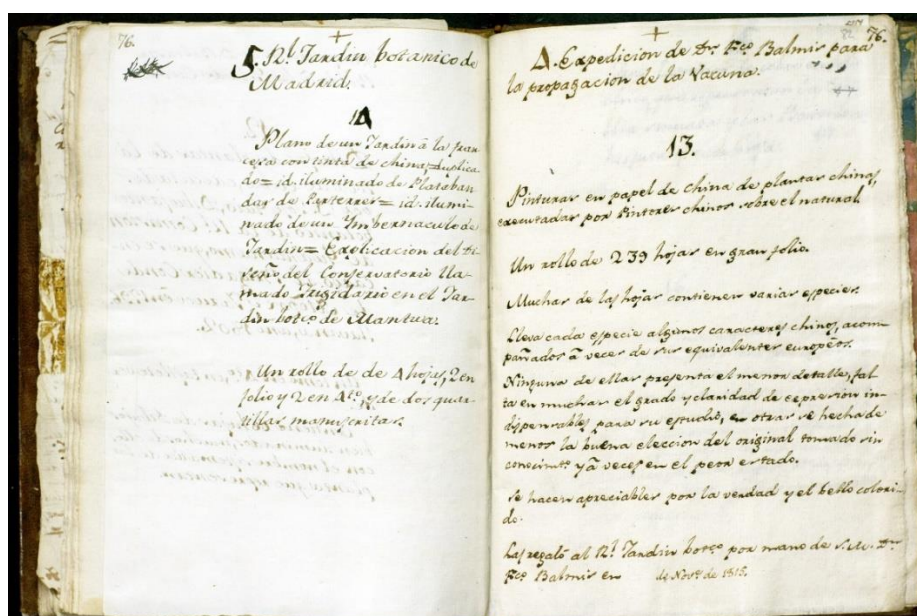 76.
5. Rl. Jardin botanico de
Madrid.
Plano de un Jardin à la fran
cesa con tinta de china=duplica
do=id. iluminado de Plataban
das de Parterres=id. ilumi
nado de un Imbernaculo de
Jardin=Explicacion del di
seño del Conservatorio lla
mado Frigidario en el Jar
din botco. de Mantua.
Un rollo de de 4 hojas, 2 en
folio y 2 en 4to., y de dos quar
tillas manuscritas.
76.
4. Expedicion de Dn. Fco. Balmis para
la propagacion de la Vacuna.
13.
Pinturas en papel de China de plantas chinas,
executadas por Pintores chinos sobre el natural
Un rollo de 239 hojas en gran folio.
Muchas de las hojas contienen varias especies.
Lleva cada especie algunos caracteres chinos, acom
pañados à veces de sus equivalentes europèos.
Ninguna de ellas presenta el menor detalle, fal
ta en muchas el grado y claridad de expresion in
dispensables para su estudio, en otras se hecha de
menos la buena eleccion del original tomado sin
conocimto. y à veces en el peor estado.
Se hacen apreciables por la verdad y el bello colori-
do.
Las regaló al Rl. Jardin botco. por mano de S.M. Dn.
Fco. Balmis en de Nove. de 1815.